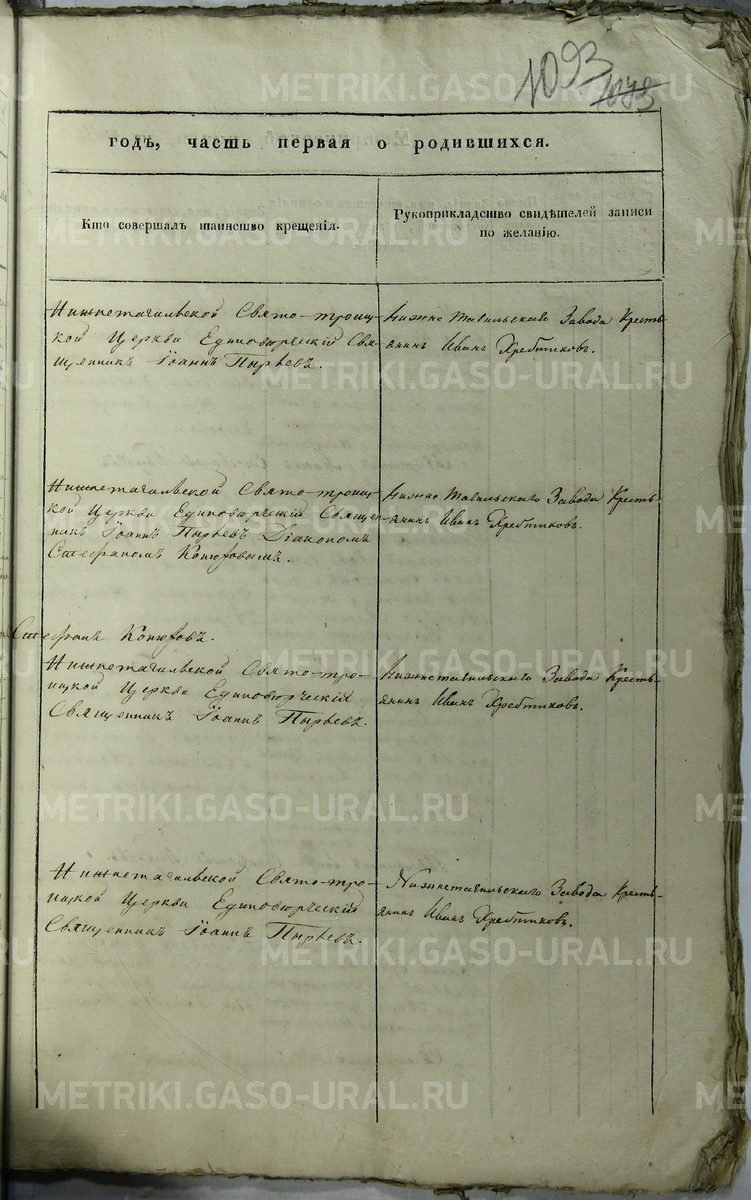 1093
1073
годъ, часть первая о родившихся.
Кто совершалъ таинство крещенія.
Рукоприкладство свидѣтелей записи
по желанію.
Нижнетагильской Свято-троиц-
кой Церкви Единовѣрческій Свя-
щенникъ Іоаннъ Пырьевъ.
Нижне Тагильскаго Завода Кресть
янинъ Иванъ Хребтиковъ.
Нижнетагильской Свято-троиц-
кой Церкви Единовѣрческій Священ-
никъ Іоаннъ Пырьевъ Діакономъ
Стефаномъ Конюховымъ.
Нижне Тагильскаго Завода Кресть-
янинъ Иванъ Хребтиковъ.
Стефанъ Конюховъ.
Нижнетагильской Свято-тро-
ицкой Церкви Единовѣрческій
Священникъ Іоаннъ Пырьевъ.
Нижнетагильскаго Завода Кресть-
янинъ Иванъ Хребтиковъ.
Нижнетагильской Свято-тро-
ицкой Церкви Единовѣрческій
Священникъ Іоаннъ Пырьевъ.
Нижнетагильскаго Завода Кресть-
янинъ Иванъ Хребтиковъ.
METRIKI.GASO-URAL.RU